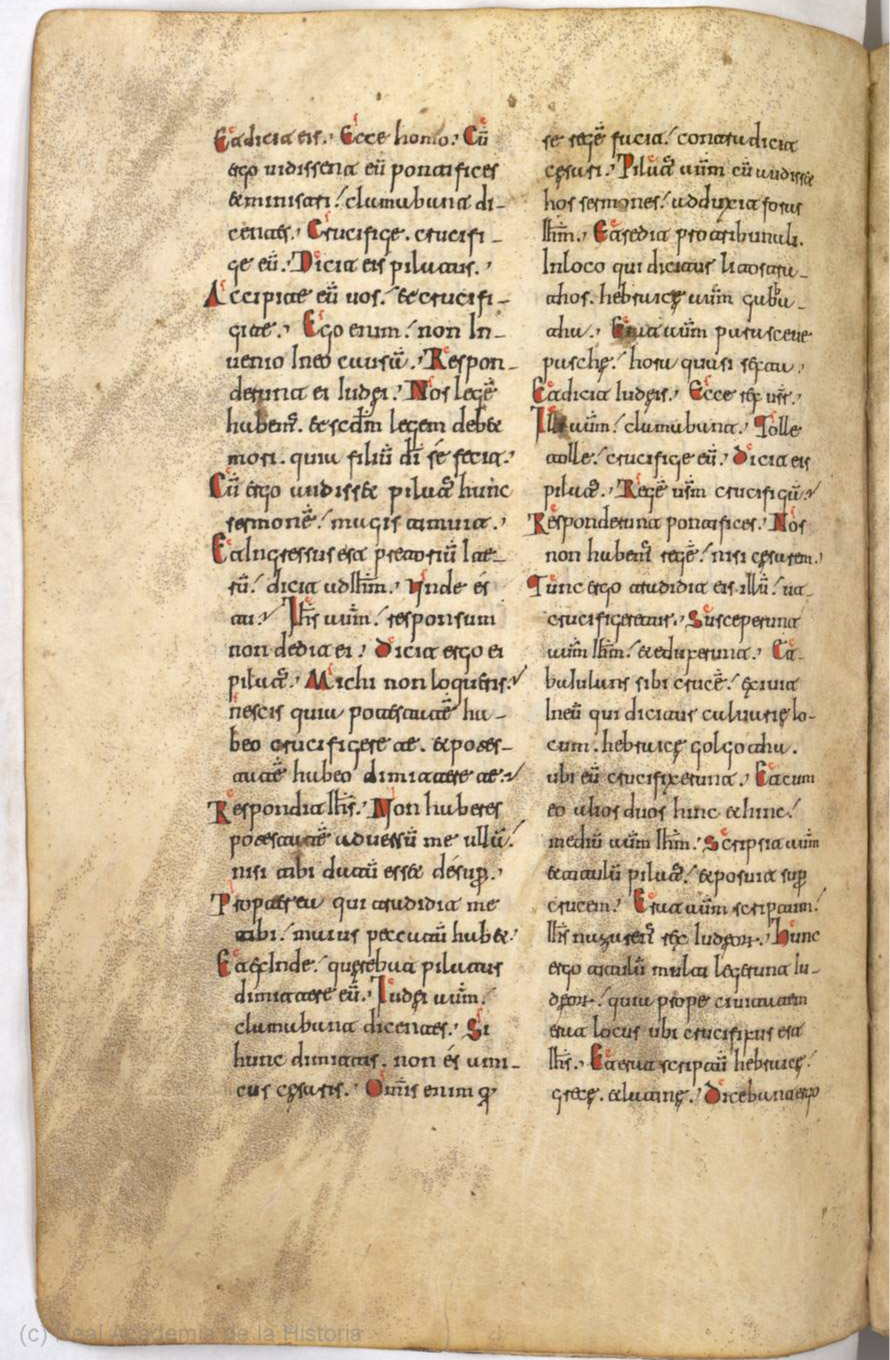 Et dicit eis. Ecce homo. Cū
ergo uidissent eū pontifices
et ministri. clamabant di-
centes. Crucifige. crucifi-
ge eū. Dicit eis pilatus.
Accipite eū uos. et crucifi-
gite. Ego enim. non In-
uenio Ineo causā. Respon-
derunt ei Iudęi. Nos legē
habem̄. et scdm̄ legem debet
mori. quia filiū dī sé fecit.
Cū ergo audisset pilat̄ hunc
sermonē. magis timuit.
Et Ingressus est pretoriū Ite-
rū. dicit ad Ihm̄. Unde es
tu. Ihs̄ autm̄. responsum
non dedit ei. Dicit ergo ei
pilat̄. Michi non loqueris.
nescis quia potestatē ha-
beo crucifigere te. et potes-
tatē habeo dimittere te.
Respondit Ihs̄. Non haberes
potestatē aduersū me ullā.
nisi tibi datū esset désup̄.
Propterea qui tradidit me
tibi. maius peccatū habet.
Et exInde. querebat pilatus
dimittere eū. Iudęi autm̄.
clamabant dicentes. Si
hunc dimittis. non és ami-
cus cęsaris. Omīs enim q
se regē facit. contradicit
cęsari. Pilat̄ autm̄ cū audisset
hos sermones. adduxit foras
Ihm̄. Et sedit pro tribunali.
Inloco qui dicitur litostra-
thos. hebraicę autm̄ gabba-
tha. Erat autm̄ parasceue
paschę. hora quasi sexta.
Et dicit Iudęis. Ecce rex ur̄.
Illi autm̄. clamabant. Tolle
tolle. crucifige eū. Dicit eis
pilat̄. Regē usm̄ crucifigā.
Responderunt pontifices. Nos
non habem̄ regē. nisi cęsarem.
Tunc ergo tradidit eis illū. ut
crucifigeretur. Susceperunt
autm̄ Ihm̄. et eduxerunt. Et
baiulans sibi crucē. exiuit
Ineū qui dicitur caluarię lo-
cum. hebraicę golgotha.
ubi eū crucifixerunt. Et cum
eo alios duos hinc et hinc.
mediū autm̄ Ihm̄. Scripsit autm̄
et titulū pilat̄. et posuit sup̄
crucem. Erat autm̄ scriptum.
Ihs̄ nazaren̄ rex Iudęor. Hunc
ergo titulū multi legerunt Iu-
dęor. quia prope ciuitatem
erat locus ubi crucifixus est
Ihs̄. Et erat scriptū hebraicę.
grecę. et latinę. Dicebant ergo
(c) Real Academia de la Historia